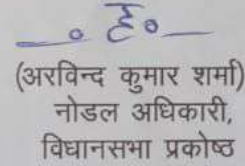 ह०
(अरविन्द कुमार शर्मा)
नोडल अधिकारी,
विधानसभा प्रकोष्ठ